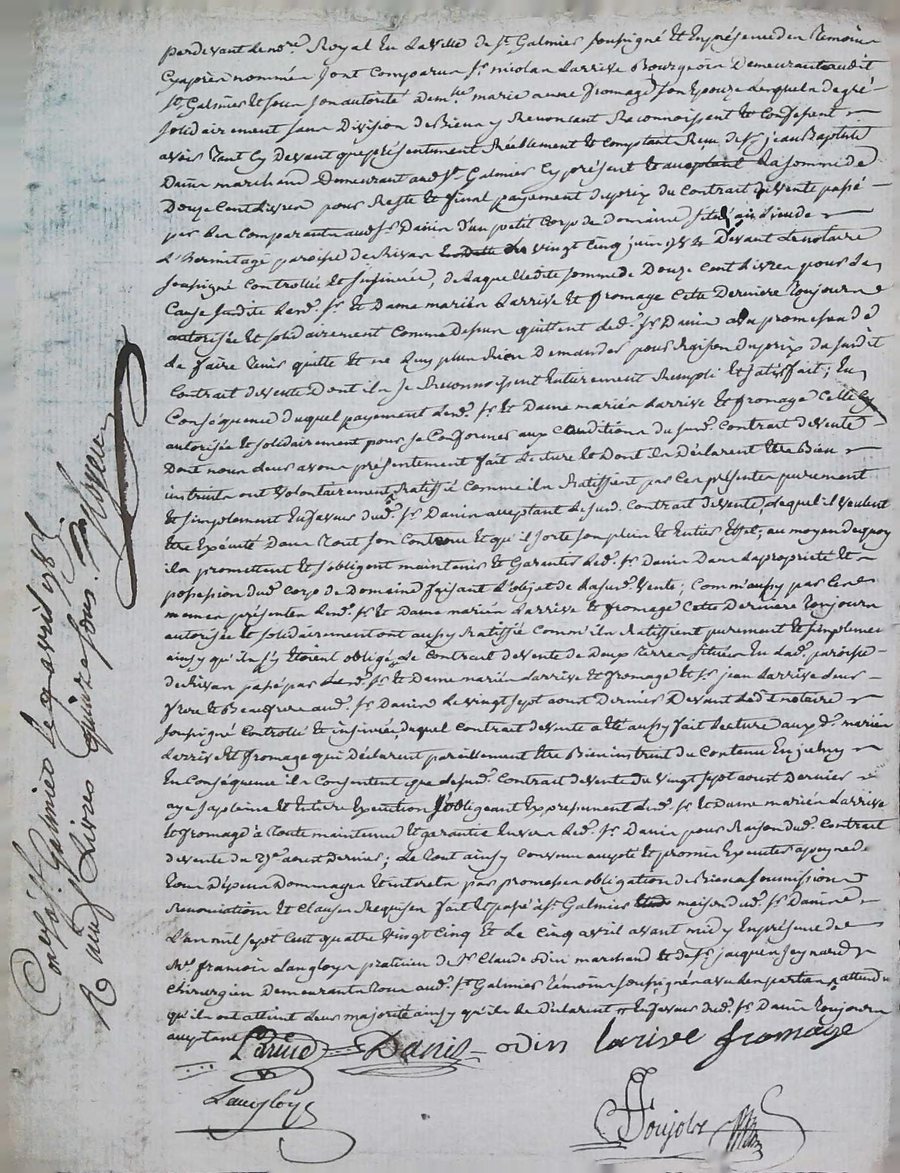 pardevant le no.re Royal En la ville de s.t Galmier soussigné Et En présence des Temoins
Cy après nommés sont Comparus s.r nicolas Larrive Bourgeois Demeurant audit
s.t Galmier Et sous son autorité dem.lle marie anne fromage son Epouze Lesquels de gré
solidairement sans Division de Biens y Renonçant Reconnoissent Et Confessent
avoir tant Cy devant que présentement Réellement Et Comptant Reçu de s.r jean Baptiste
Danis marchand Demeurant aud. s.t Galmier Cy présent Et acceptant La somme de
Douze Cent Livres pour Reste Et final payement du prix du Contrat de vente passé
par les Comparants aud. s.r Danis d'un petit Corps de Domaine situé au Lieu de
L'hermitage paroisse de Rivas vingt Cinq juin Devant Le notaire
soussigné Controllé Et insinué, de laquelle dite somme de Douze Cent Livres pour la
Cause susdite Lesd. s.r Et Dame mariés Larrive Et fromage Cette Derniere Toujours
autorisée Et solidairement Comme Dessus quittent led. s.r Danis avec promesse de
de faire Tenir quitte Et ne Luy plus Rien Demander pour Raison du prix du susdit
Contrat de vente Dont ils se Reconnoissent Entierement Rempli Et satisfait; En
Conséquence duquel payement Lesd. s.r Et Dame mariés Larrive Et fromage Celle Cy
autorisée Et solidairement pour se Conformer aux Conditions du susd. Contrat de vente
Dont nous Leurs avons présentement fait Lecture Et Dont ils Déclarent Etre Bien
instruits ont volontairement Ratiffié Comme ils Ratiffient par Ces présentes purement
Et simplement En faveur dud. s.r Danis acceptant Le susd. Contrat de vente, Lequel il veulent
Etre Exécuté Dans Tout son Contenu Et qu'il sorte son plein Et Entier Effet; au moyen de quoy
ils promettent Et s'obligent maintenir Et Garantir Led. s.r Danis Dans La propriété Et
possession dud. Corps de Domaine faisant L'objet de la susd. vente; Comm'aussy par Ces
mêmes présentes Lesd. s.r Et Dame mariés Larrive Et fromage Cette Derniere Toujours
autorisée Et solidairement ont aussy Ratiffié Comm'ils Ratiffient purement Et simplement
ainsy qu'ils s'y Etoient obligés Le Contrat de vente de Deux Terres situées En lad. paroisse
de Rivas passé par Lesd. s.r Et Dame mariés Larrive Et fromage Et s.r jean Larrive Leur
frere Et Beaufrere aud. s.r Danis Le vingt sept aoust Dernier Devant Led.t notaire
soussigné Controllé Et insinué, duquel Contrat de vente a été aussy fait Lecture aux d. mariés
Larrive Et fromage qui Déclarent pareillement Etre Bien instruit du Contenu En iceluy
En Conséquence ils Consentent que Le susd. Contrat de vente du Vingt sept aoust Dernier
aye sa pleine Et Entiere Execution s'obligeant Expressement Lesd. s.r Et Dame mariés Larrive
Et fromage à Toute maintenue Et garantie Envers Led. s.r Danis pour Raison dud. Contrat
de vente du 27.e aoust Dernier; Le Tout ainsy Convenu accepté Et promis Exécuter a peyne de
Tous Dépens Dommages Et interets par promesse obligation de Biens soumissions
Renonciations Et Clauses Requises fait Et passé à s.t Galmier maison dud. s.r Danis
L'an mil sept Cent quatre Vingt Cinq Et Le Cinq avril avant midy En présence de
M.e françois Langloys praticien de s.r Claude odin marchand Et de s.r jacques
Chirurgien Demeurants Tous aud. s.t Galmier Témoins soussignés avec les parties attendu
qu'ils ont atteint Leurs majorité ainsy qu'ils Le Déclarent Et En faveur dud. s.r Danis Toujours
acceptant
Larrive Danis odin larive fromage
Langloys Ponjolx
Con.lé à s.t Galmier le 9 avril 1785.
R. neuf Livres quinze sous.